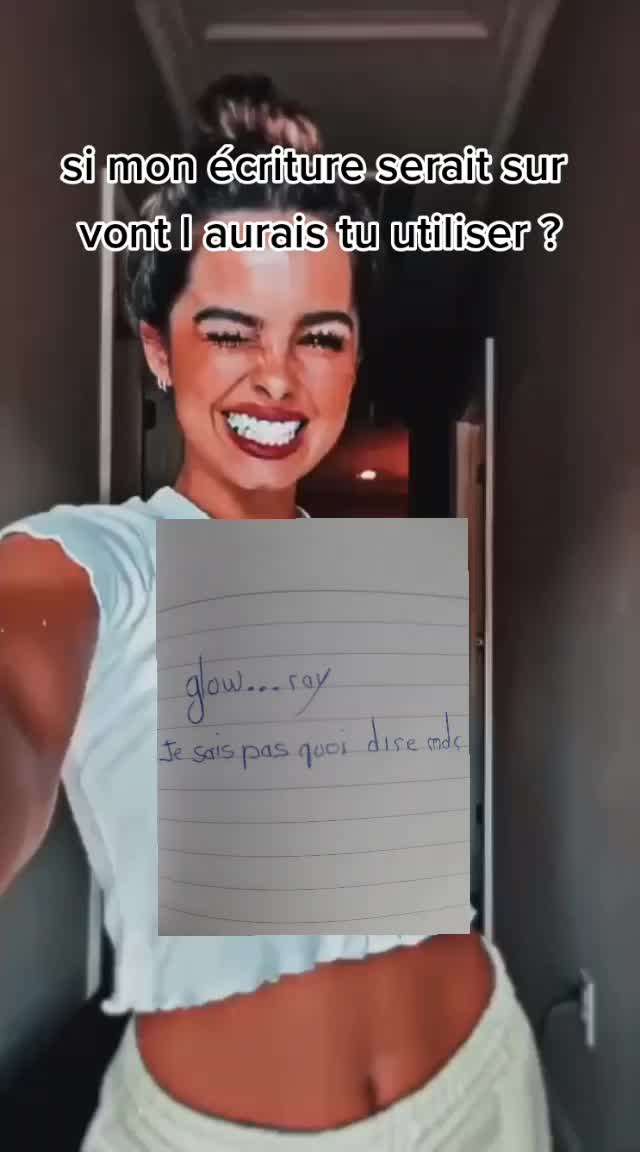 si mon écriture serait sur
vont l aurais tu utiliser ?
glow...ray
Je sais pas quoi dire mdr